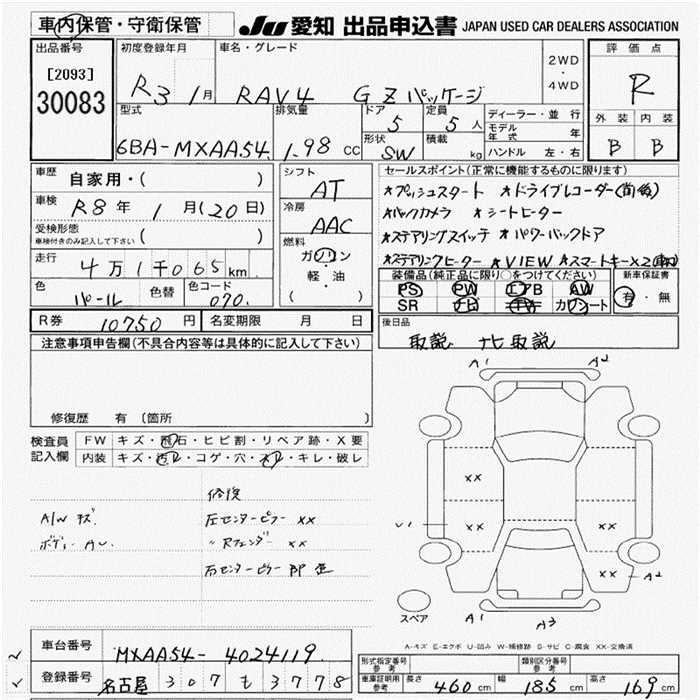 車内保管・守衛保管
JU 愛知 出品申込書 JAPAN USED CAR DEALERS ASSOCIATION
出品番号
[2093]
30083
初度登録年月
R3 1月
車名・グレード
RAV4 G Zパッケージ
2WD
・
4WD
評価点
R
外装 内装
B B
型式
6BA-MXAA54
排気量
1.98 CC
ドア
5
定員
5 人
形状
SW
積載
kg
ディーラー・並行
モデル年式 年
ハンドル 左・右
車歴 自家用・( )
車検 R8年 1月(20日)
受検形態
車検付きのみ記入して下さい ( )
走行 4万1千065km
色 パール 色替 色コード 070
シフト
AT
冷房
AAC
燃料
ガソリン
・
軽・油
( )
セールスポイント(正常に機能するものに限ります)
★プッシュスタート ★ドライブレコーダー(前後)
★バックカメラ ★シートヒーター
★ステアリングスイッチ ★パワーバックドア
★ステアリングヒーター ★VIEW ★スマートキーX2
装備品(純正品に限り○をつけてください)
PS PW エアB AW
SR ナビ TV カワシート
新車保証書
有・無
R券 10750円 名変期限 月 日
後日品
取説 ナビ取説
注意事項申告欄(不具合内容等は具体的に記入して下さい)
修復歴 有 〔箇所 〕
検査員
記入欄
FW キズ・飛石・ヒビ割・リペア跡・X要
内装 キズ・汚レ・コゲ・穴・スレ・キレ・破レ
修復
A/W キズ 左センターピラー XX
ボディー AU 〃Rフェンダー XX
右センターピラー 即金
A1 A2
XX
U1 XX XX
XX A2
スペア
A1 A3
A-キズ E-エクボ U-凹み W-補修跡 S-サビ C-腐食 XX-交換済
車台番号 MXAA54-4024119
登録番号 名古屋 307 も 3778
型式指定番号
参考
類別区分番号
参考
車庫証明用
参考
長さ 460 cm 幅 185 cm 高さ 169 cm